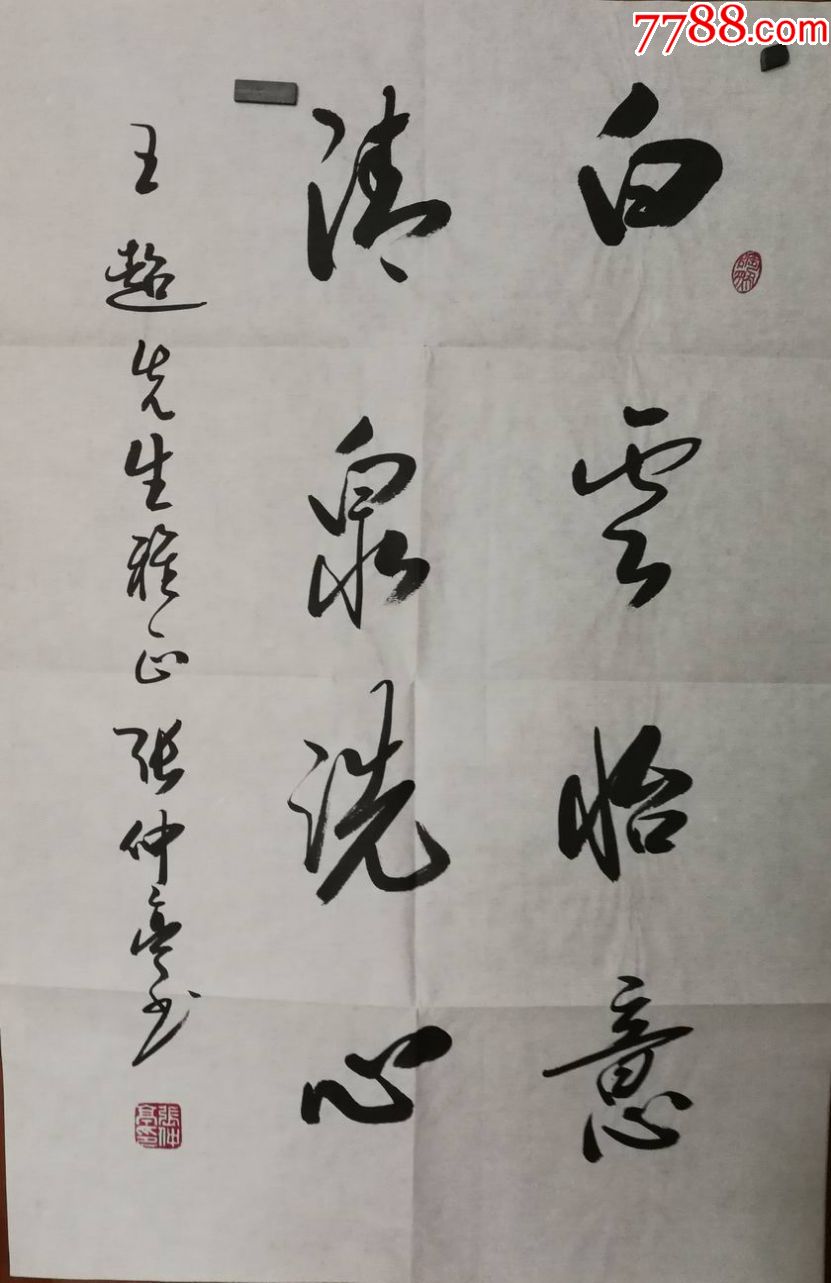 7788.com
白雲怡意
清泉洗心
王超先生雅正 张仲亭书
張仲亭印